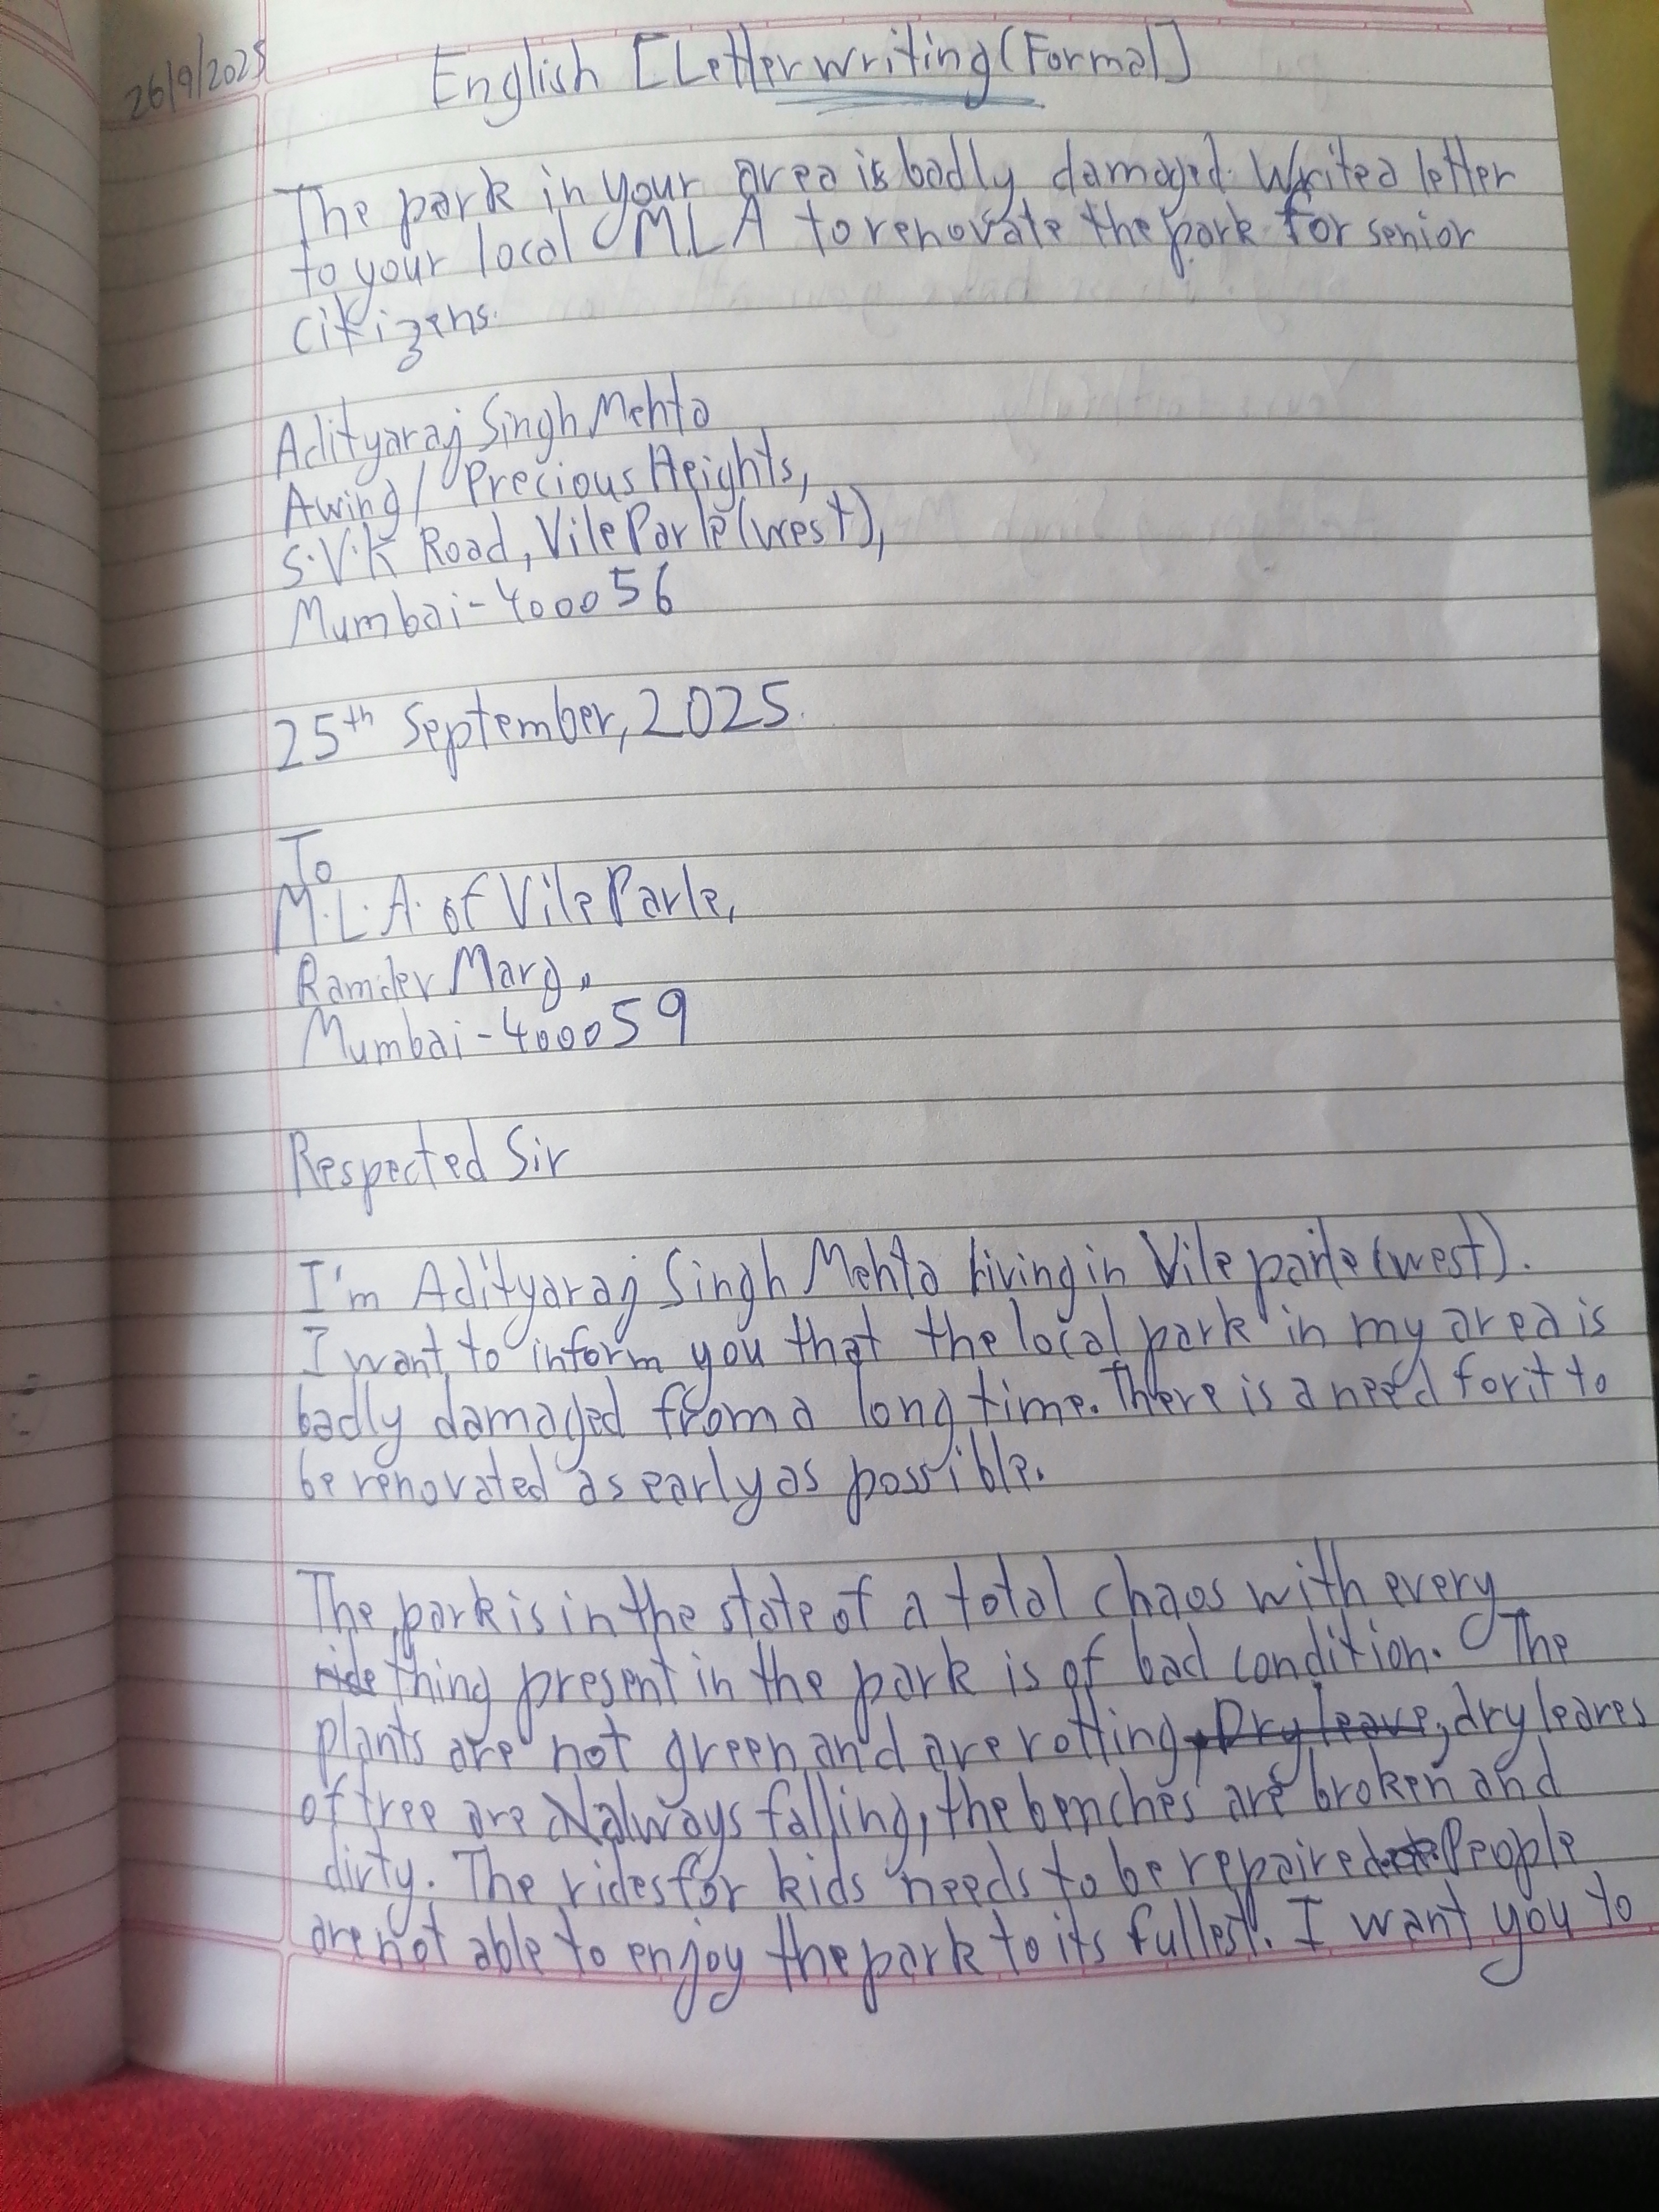 26/9/2025
English [Letter writing (Formal]
The park in your area is badly damaged. Write a letter
to your local MLA to renovate the park for senior
citizens.
Adityaraj Singh Mehta
A wing / Precious Heights,
S.V.K Road, Vile Parle (west),
Mumbai - 400056
25th September, 2025.
To
M.L.A. of Vile Parle,
Ramdev Marg,
Mumbai - 400059
Respected Sir
I'm Adityaraj Singh Mehta living in Vile parle (west).
I want to inform you that the local park in my area is
badly damaged from a long time. There is a need for it to
be renovated as early as possible.
The park is in the state of a total chaos with every
ride thing present in the park is of bad condition. The
plants are not green and are rotting, Dry leave, dry leaves
of tree are always falling, the benches are broken and
dirty. The rides for kids needs to be repaired People
are not able to enjoy the park to its fullest. I want you to